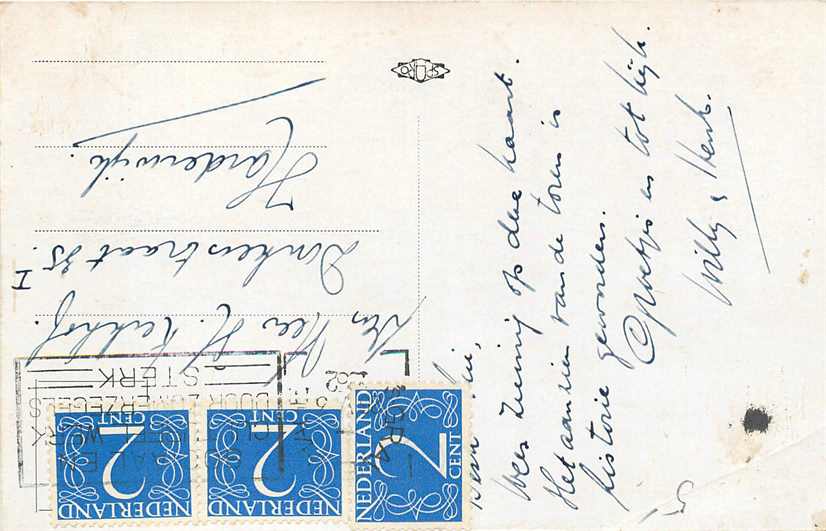 5
Wees zuinig op deze kaart.
Het aanzien van de toren is
historie geworden.
Groetjes en tot kijk.
Willy & Henk.
NEDERLAND
2
CENT
NEDERLAND
2
CENT
NEDERLAND
2
CENT
DOOR ZOMERZEGELS
STERK
Den Heer H. Kerkhof.
Donkerstraat 35 I.
Harderwijk.
SPARO